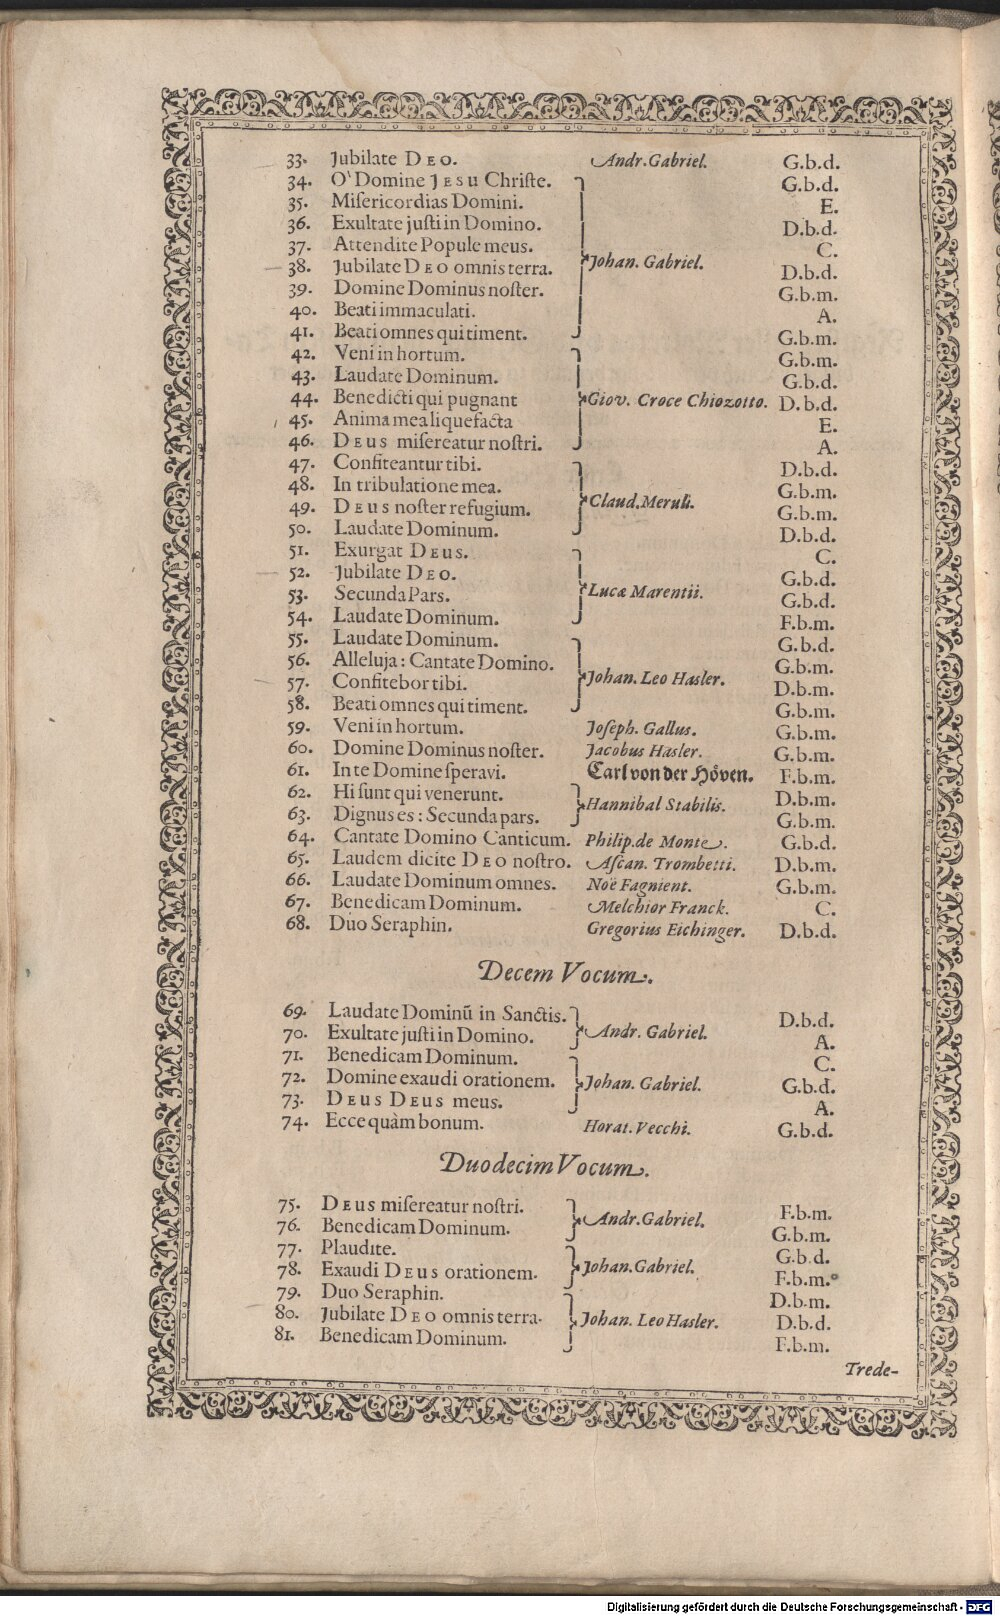 33. Jubilate DEO. Andr. Gabriel. G.b.d.
34. O Domine JESU Christe. G.b.d.
35. Misericordias Domini. E.
36. Exultate justi in Domino. D.b.d.
37. Attendite Popule meus. C.
38. Jubilate DEO omnis terra. Johan. Gabriel. D.b.d.
39. Domine Dominus noster. G.b.m.
40. Beati immaculati. A.
41. Beati omnes qui timent. G.b.m.
42. Veni in hortum. G.b.m.
43. Laudate Dominum. G.b.d.
44. Benedicti qui pugnant Giov. Croce Chiozotto. D.b.d.
45. Anima mea liquefacta E.
46. DEUS misereatur nostri. A.
47. Confiteantur tibi. D.b.d.
48. In tribulatione mea. G.b.m.
49. DEUS noster refugium. Claud. Meruli. G.b.m.
50. Laudate Dominum. D.b.d.
51. Exurgat DEUS. C.
52. Jubilate DEO. G.b.d.
53. Secunda Pars. Lucæ Marentii. G.b.d.
54. Laudate Dominum. F.b.m.
55. Laudate Dominum. G.b.d.
56. Alleluja: Cantate Domino. G.b.m.
57. Confitebor tibi. Johan. Leo Hasler. D.b.m.
58. Beati omnes qui timent. G.b.m.
59. Veni in hortum. Joseph. Gallus. G.b.m.
60. Domine Dominus noster. Jacobus Hasler. G.b.m.
61. In te Domine speravi. Carl von der Höven. F.b.m.
62. Hi sunt qui venerunt. D.b.m.
63. Dignus es: Secunda pars. Hannibal Stabilis. G.b.m.
64. Cantate Domino Canticum. Philip. de Monte. G.b.d.
65. Laudem dicite DEO nostro. Ascan. Trombetti. D.b.m.
66. Laudate Dominum omnes. Noë Fagnient. G.b.m.
67. Benedicam Dominum. Melchior Franck. C.
68. Duo Seraphin. Gregorius Eichinger. D.b.d.
Decem Vocum.
69. Laudate Dominū in Sanctis. D.b.d.
70. Exultate justi in Domino. Andr. Gabriel. A.
71. Benedicam Dominum. C.
72. Domine exaudi orationem. Johan. Gabriel. G.b.d.
73. DEUS DEUS meus. A.
74. Ecce quàm bonum. Horat. Vecchi. G.b.d.
Duodecim Vocum.
75. DEUS misereatur nostri. F.b.m.
76. Benedicam Dominum. Andr. Gabriel. G.b.m.
77. Plaudite. G.b.d.
78. Exaudi DEUS orationem. Johan. Gabriel. F.b.m.
79. Duo Seraphin. D.b.m.
80. Jubilate DEO omnis terra. Johan. Leo Hasler. D.b.d.
81. Benedicam Dominum. F.b.m.
Trede-
Digitalisierung gefördert durch die Deutsche Forschungsgemeinschaft - DFG